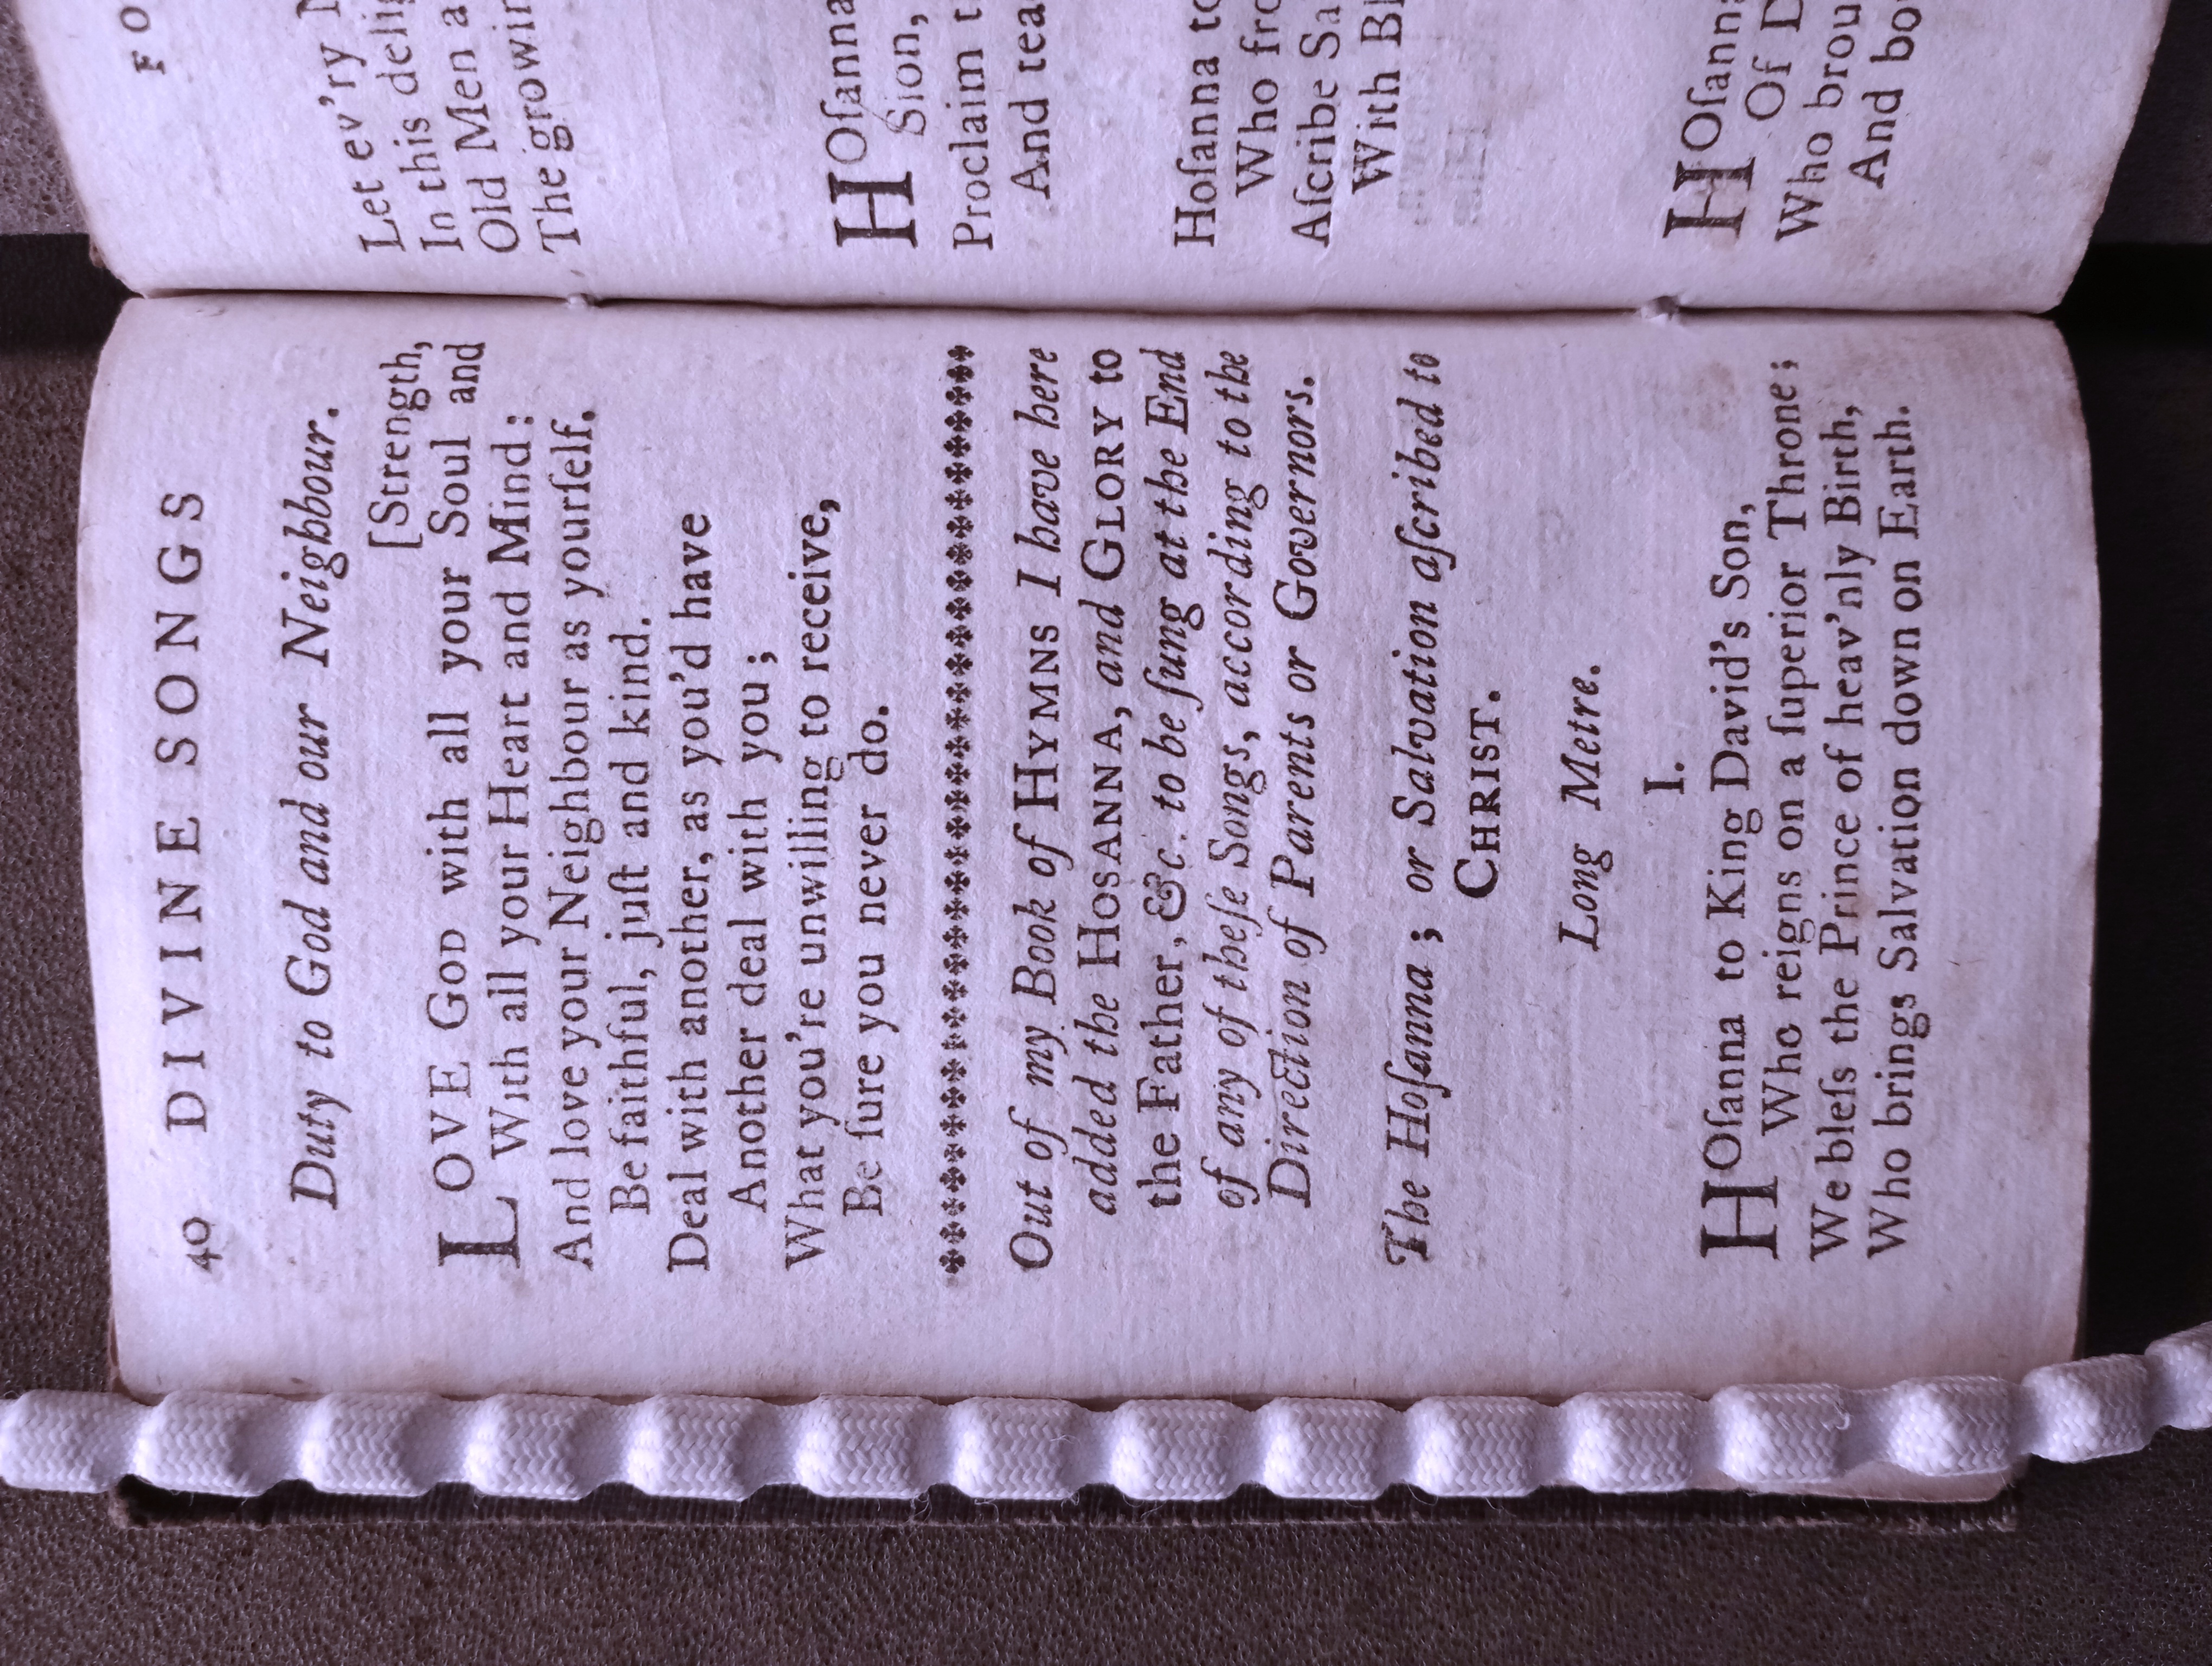 40 DIVINE SONGS
Duty to God and our Neighbour.
[Strength,
LOVE GOD with all your Soul and
With all your Heart and Mind;
And love your Neighbour as yourſelf,
Be faithful, juſt and kind.
Deal with another, as you'd have
Another deal with you;
What you're unwilling to receive,
Be ſure you never do.
Out of my Book of HYMNS I have here
added the HOSANNA, and GLORY to
the Father, &c. to be ſung at the End
of any of theſe Songs, according to the
Direction of Parents or Governors.
The Hoſanna; or Salvation aſcribed to
CHRIST.
Long Metre.
I.
HOſanna to King David's Son,
Who reigns on a ſuperior Throne;
We bleſs the Prince of heav'nly Birth,
Who brings Salvation down on Earth.
FO
Let ev'ry
In this
Old Men a
The
HOſanna
Sion,
Proclaim
And
Hoſanna
Who
Aſcribe
With
HOſanna
Of
Who
And